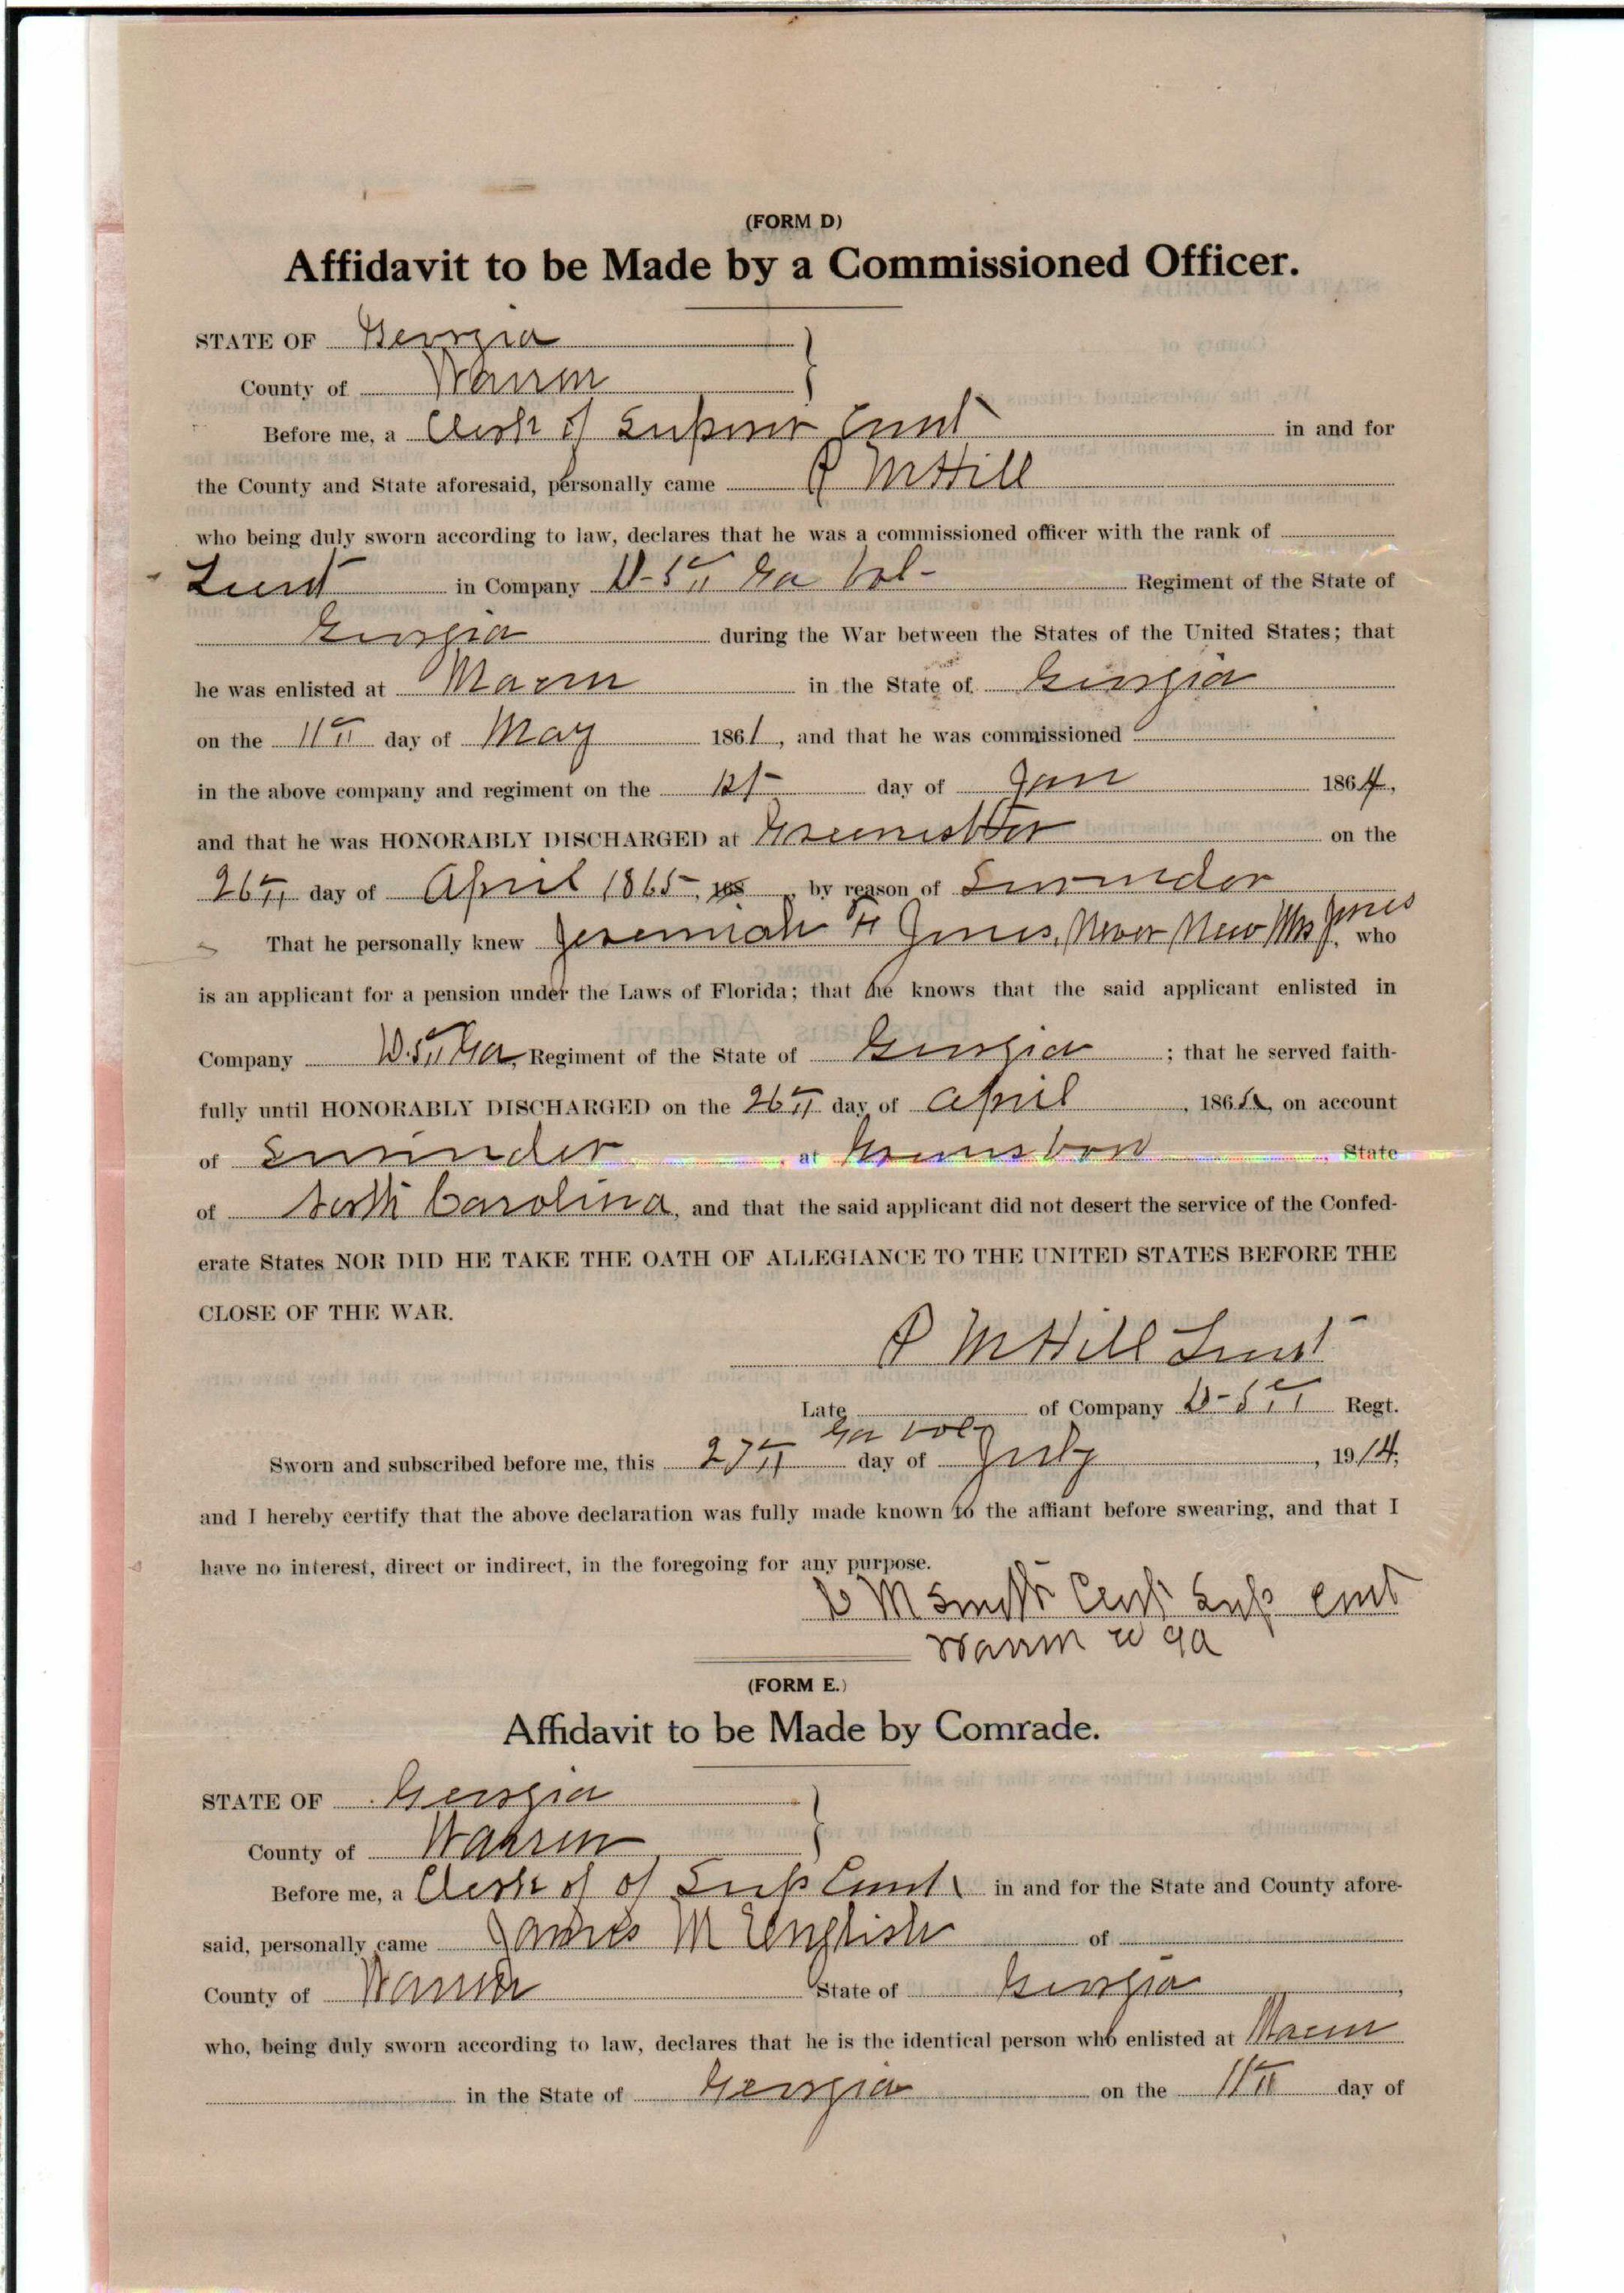 (FORM D)
Affidavit to be Made by a Commissioned Officer.
STATE OF Georgia
County of Warren
Before me, a Clerk of Superior Court in and for
the County and State aforesaid, personally came R M Hill
who being duly sworn according to law, declares that he was a commissioned officer with the rank of
Lieut in Company D-5th Ga Vol- Regiment of the State of
Georgia during the War between the States of the United States; that
he was enlisted at Macon in the State of Georgia
on the 11th day of May 1861, and that he was commissioned
in the above company and regiment on the 1st day of Jan 1864,
and that he was HONORABLY DISCHARGED at on the
26th day of April 1865, 186 , by reason of Surrender
That he personally knew Jeremiah H Jones, Never New Mrs J. Jones who
is an applicant for a pension under the Laws of Florida; that he knows that the said applicant enlisted in
Company D. 5th Ga, Regiment of the State of Georgia ; that he served faith-
fully until HONORABLY DISCHARGED on the 26th day of April , 1865, on account
of Surrender at Greensboro , State
of North Carolina, and that the said applicant did not desert the service of the Confed-
erate States NOR DID HE TAKE THE OATH OF ALLEGIANCE TO THE UNITED STATES BEFORE THE
CLOSE OF THE WAR.
R M Hill Lieut
Late of Company D-5th Regt.
Ga Vol
Sworn and subscribed before me, this 27th day of July , 1914;
and I hereby certify that the above declaration was fully made known to the affiant before swearing, and that I
have no interest, direct or indirect, in the foregoing for any purpose.
M Smith Clerk Sup Court
Warren Co Ga
(FORM E.)
Affidavit to be Made by Comrade.
STATE OF Georgia
County of Warren
Before me, a Clerk of of Sup Court in and for the State and County afore-
said, personally came James M English of
County of Warren State of Georgia ,
who, being duly sworn according to law, declares that he is the identical person who enlisted at Macon
in the State of Georgia on the 11th day of